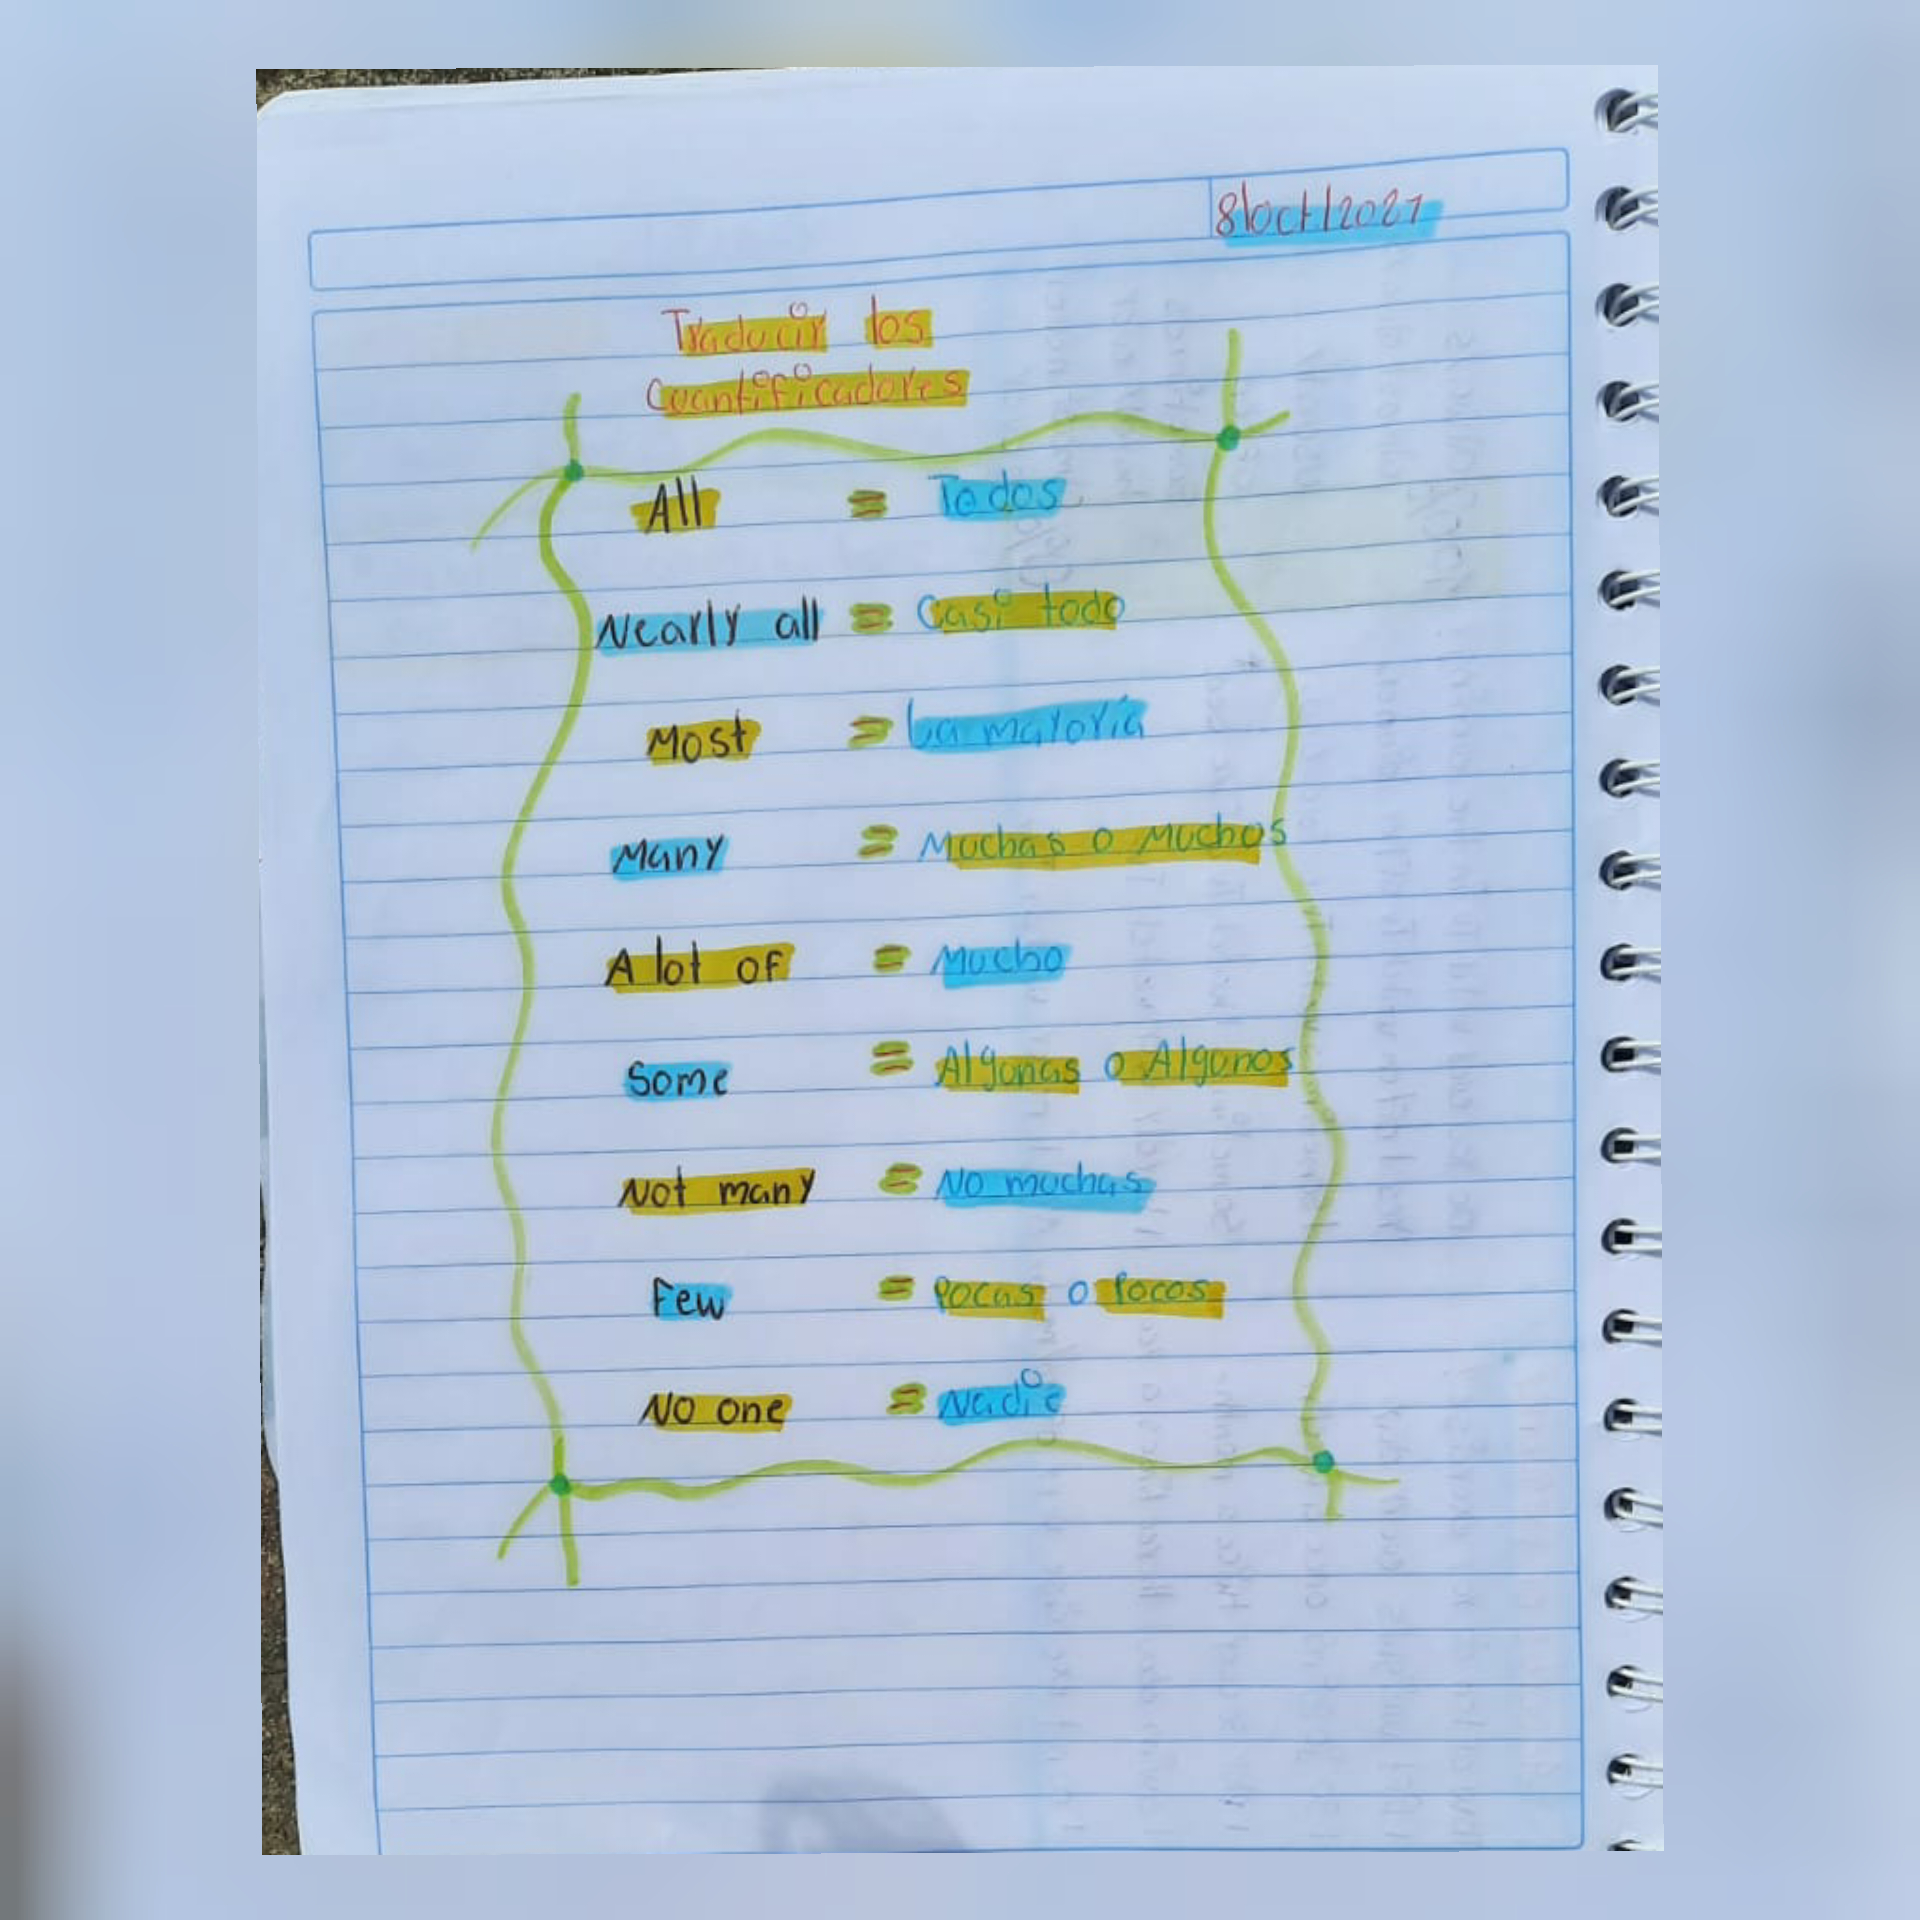 8/oct/2021
Traducir los
Cuantificadores
All = Todos
Nearly all = Casi todo
Most = La mayoría
Many = Muchas o Muchos
A lot of = Mucho
Some = Algunas o Algunos
Not many = No muchas
Few = Pocas o Pocos
No one = Nadie